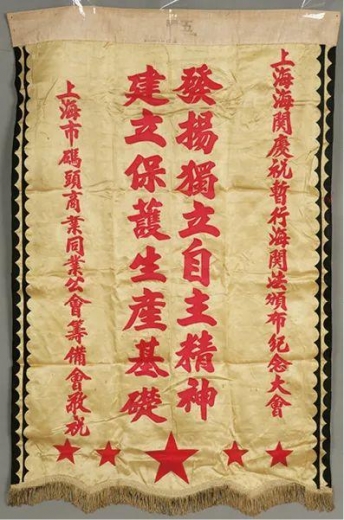 上海海関慶祝暫行海関法頒布紀念大會
發揚獨立自主精神
建立保護生產基礎
上海市碼頭商業同業公會籌備會敬祝